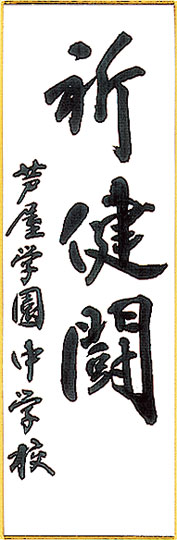 祈健闘
芦屋学園中学校